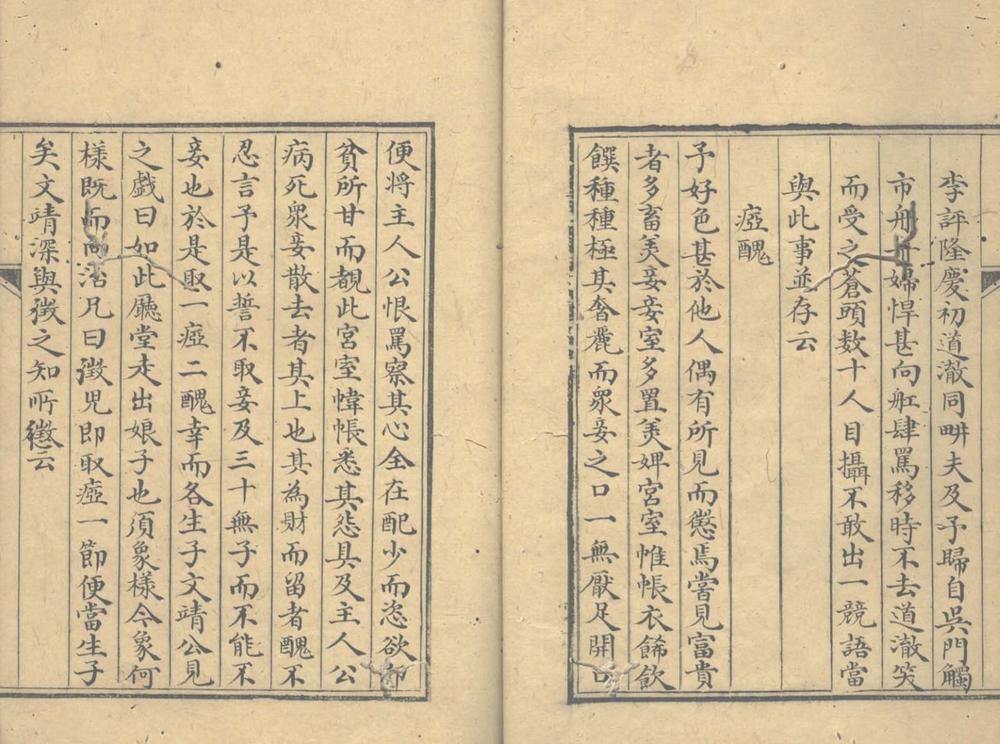 李評隆慶初道澈同畊夫及予歸自吳門觸
市舟婦悍甚向舡肆罵移時不去道澈笑
而受之蒼頭数十人目攝不敢出一競語當
與此事並存云
瘂醜
予好色甚於他人偶有所見而懲焉嘗見富貴
者多畜美妾妾室多置美婢宮室帷帳衣餙飲
饌種種極其奢麗而眾妾之口一無厭足開口
便將主人公恨罵察其心全在配少而恣欲却
貧所甘而覩此宮室幃帳悉其恣具及主人公
病死眾妾散去者其上也其為財而留者醜不
忍言予是以誓不取妾及三十無子而不能不
妾也於是取一瘂二醜幸而各生子文靖公見
之戲曰如此廳堂走出娘子也須象樣今象何
樣既而尚治凡曰徵児即取瘂一節便當生子
矣文靖深與徵之知所懲云